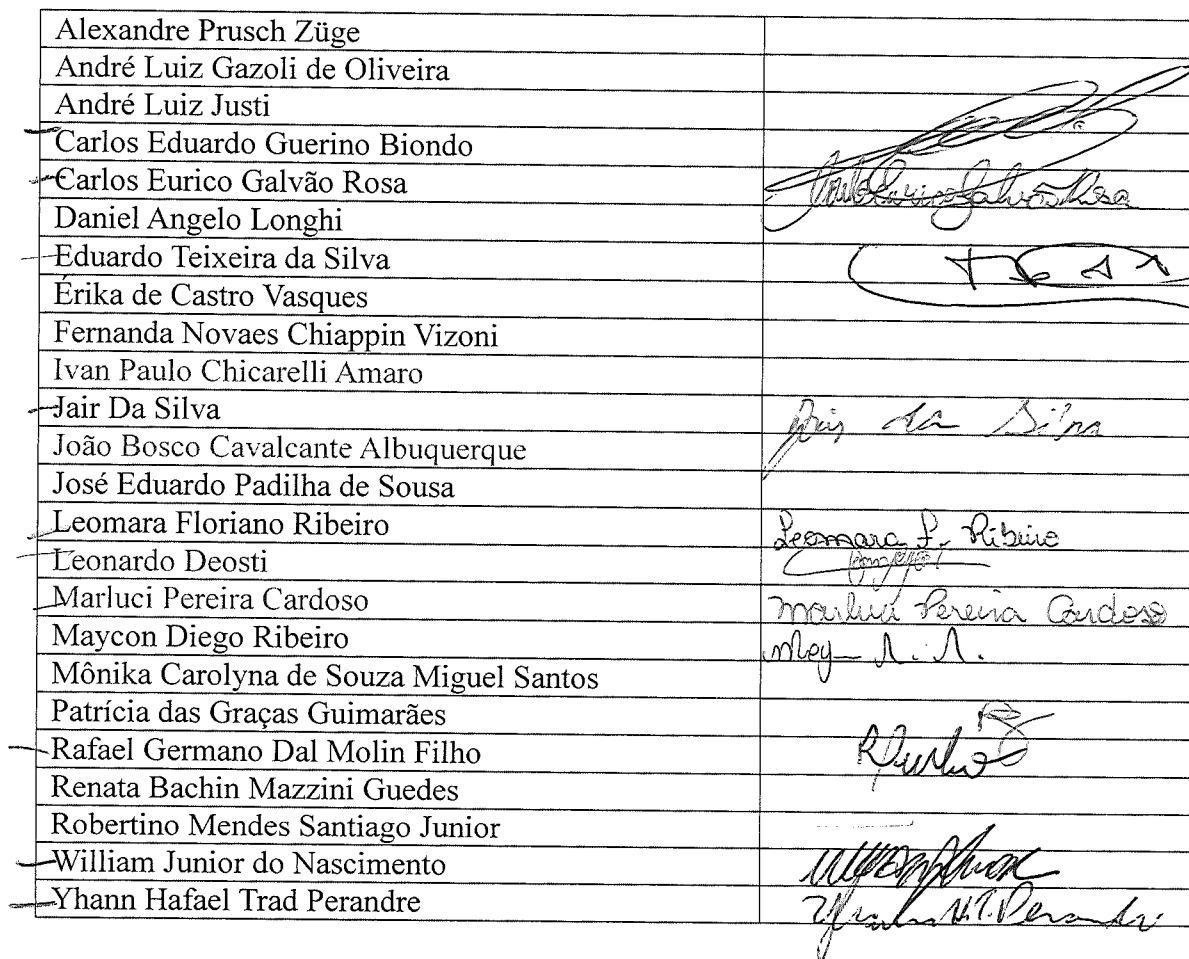 Alexandre Prusch Züge
André Luiz Gazoli de Oliveira
André Luiz Justi
Carlos Eduardo Guerino Biondo
Carlos Eurico Galvão Rosa Carlos Eurico Galvão Rosa
Daniel Angelo Longhi
Eduardo Teixeira da Silva
Érika de Castro Vasques
Fernanda Novaes Chiappin Vizoni
Ivan Paulo Chicarelli Amaro
Jair Da Silva Jair da Silva
João Bosco Cavalcante Albuquerque
José Eduardo Padilha de Sousa
Leomara Floriano Ribeiro Leomara F. Ribeiro
Leonardo Deosti
Marluci Pereira Cardoso Marluci Pereira Cardoso
Maycon Diego Ribeiro
Mônika Carolyna de Souza Miguel Santos
Patrícia das Graças Guimarães
Rafael Germano Dal Molin Filho
Renata Bachin Mazzini Guedes
Robertino Mendes Santiago Junior
William Junior do Nascimento
Yhann Hafael Trad Perandre Yhann H.T. Perandre